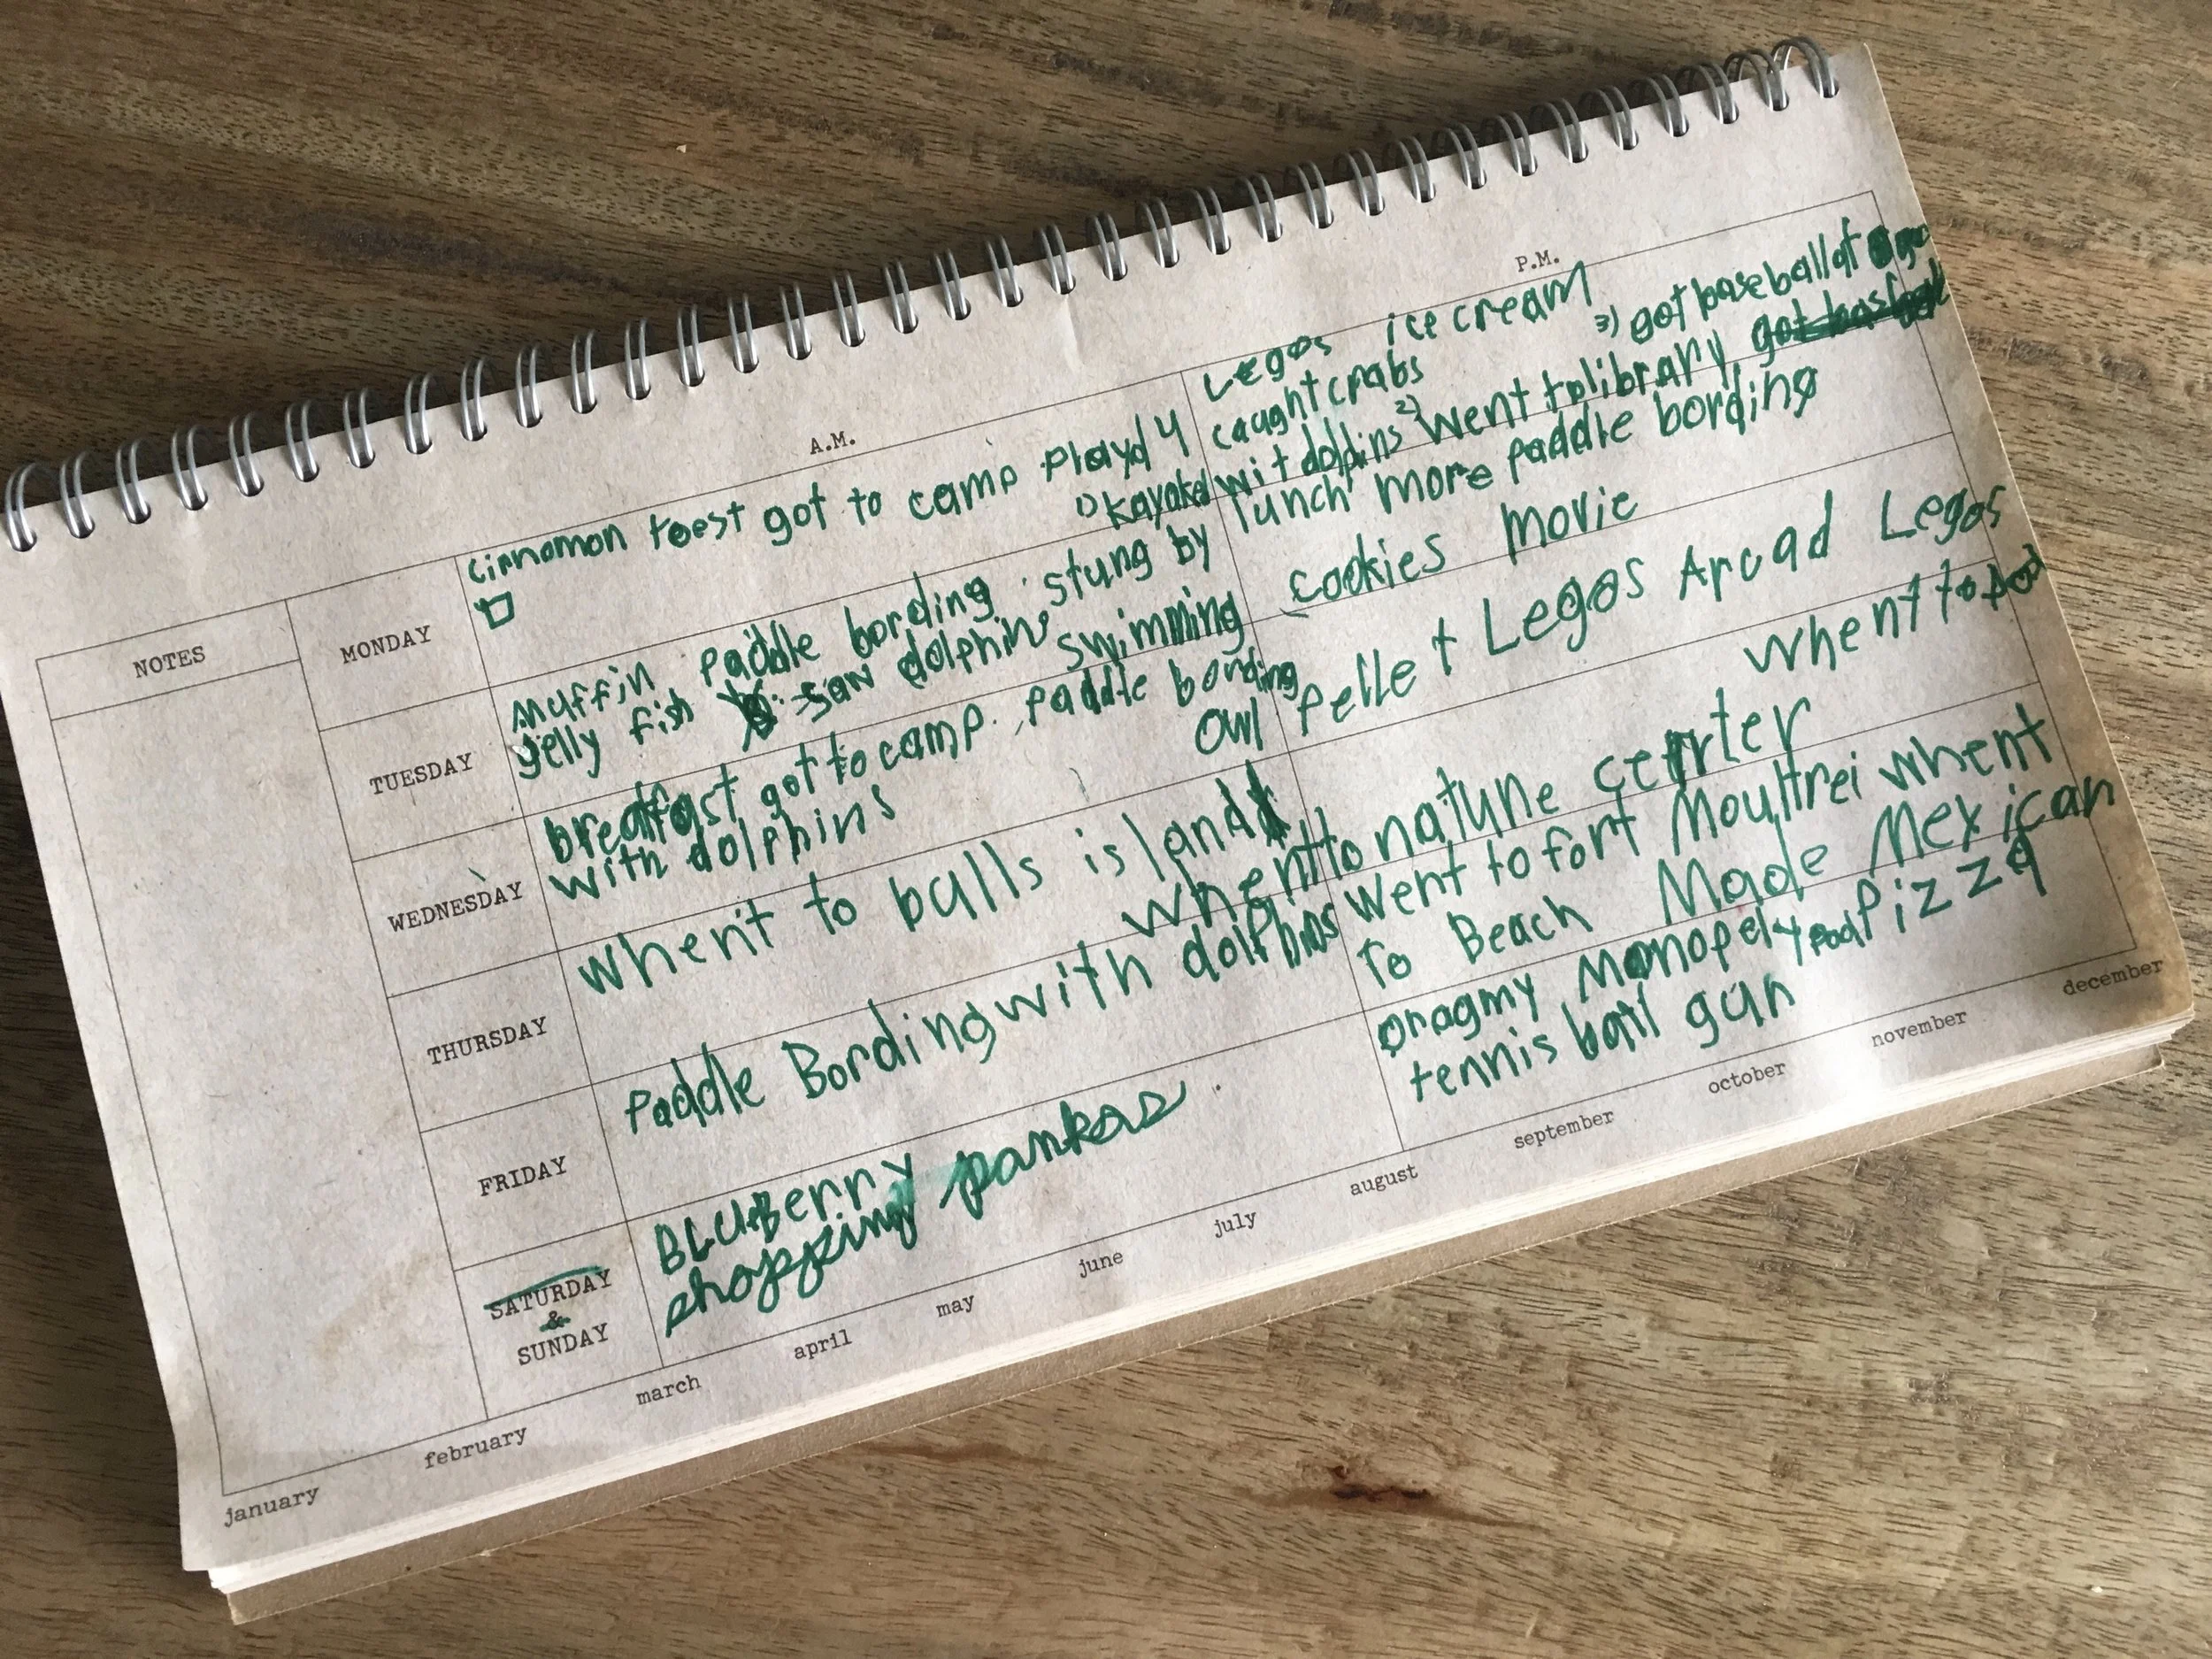 A.M.
P.M.
NOTES
MONDAY
cinnamon toest got to camp Playd 4
□
Legos ice cream
caught crabs
3) got baseball at
1) kayaked wit dolpins 2) went to library got
TUESDAY
muffin paddle bording stung by
jelly fish saw dolphins
lunch more paddle bording
WEDNESDAY
breakfast got to camp. paddle bording
with dolphins
swimming
cookies movie
THURSDAY
whent to bulls island
owl pellet Legos Arcad Legos
whent to nature center
whent to
FRIDAY
Paddle Bording with dolphins
went to fort Moultrei whent
To Beach Made Mexican
SATURDAY
&
SUNDAY
BLUBerry
shopping
oragmy Monopely Pizza
tennis ball gun
january
february
march
april
may
june
july
august
september
october
november
december